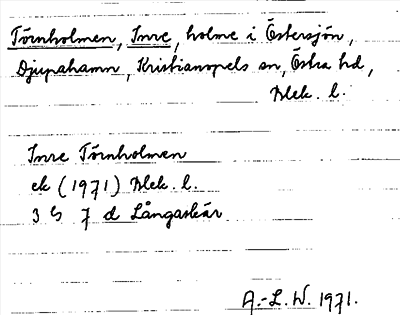 Törnholmen, Inre, holme i Östersjön,
Djupahamn, Kristianopels sn, Östra hd,
Blek. l.
Inre Törnholmen
ek (1971) Blek. l.
3 G 7 d Långaskär
A.-L. W. 1971.